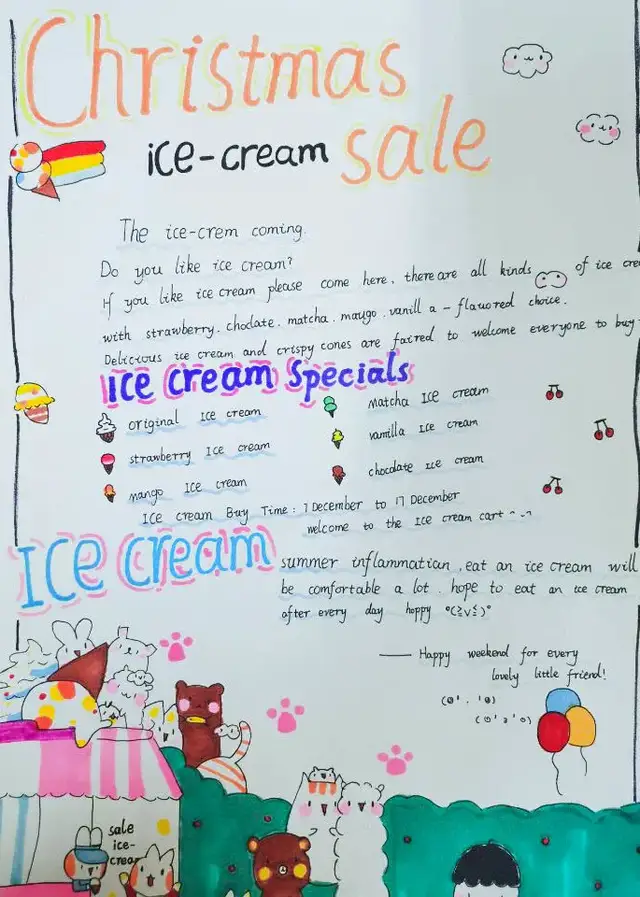 Christmas
ice-cream sale
The ice-crem coming.
Do you like ice cream?
If you like ice cream please come here. there are all kinds of ice crea
with strawberry. choclate. matcha. maugo. vanill a - flauored choice.
Delicious ice cream and crispy cones are faired to welcome everyone to buy
Ice cream Specials
original Ice cream
strawberry Ice cream
mango Ice cream
Matcha Ice cream
vanilla Ice cream
chocdate Ice cream
Ice cream Buy Time: 1 December to 17 December
welcome to the Ice cream cart ^-^
Ice cream
summer inflammatian, eat an ice cream will
be comfortable a lot. hope to eat an ice cream
after every day hoppy °(≧v≦)°
—— Happy weekend for every
lovely little friend!
sale
ice-
cream